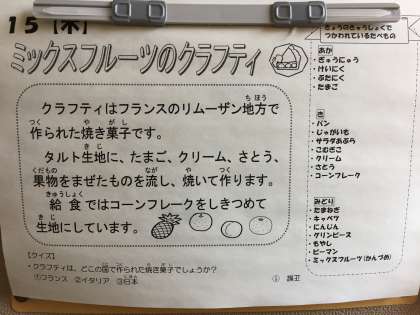 15【木】
ミックスフルーツのクラフティ
クラフティはフランスのリムーザン地方で
作られた焼き菓子です。
タルト生地に、たまご、クリーム、さとう、
果物をまぜたものを流し、焼いて作ります。
給食ではコーンフレークをしきつめて
生地にしています。
【クイズ】
・クラフティは、どこの国で作られた焼き菓子でしょうか？
①フランス ②イタリア ③日本
きょうのきゅうしょくで
つかわれているたべもの
あか
・ぎゅうにゅう
・けいにく
・ぶたにく
・たまご
き
・パン
・じゃがいも
・サラダあぶら
・こむぎこ
・クリーム
・さとう
・コーンフレーク
みどり
・たまねぎ
・キャベツ
・にんじん
・グリンピース
・もやし
・ピーマン
・ミックスフルーツ(かんづめ)